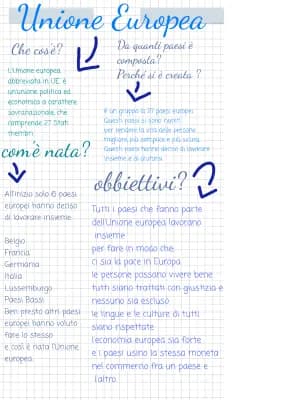 Unione Europea
Che cos'è?
L'Unione europea,
abbreviata in UE, è
un'unione politica ed
economica a carattere
sovranazionale, che
comprende 27 Stati
membri.
Da quanti paesi è
composta?
Perché si è creata ?
è un gruppo di 27 paesi europei.
Questi paesi si sono riuniti
per rendere la vita delle persone
migliore, più semplice e più sicura.
Questi paesi hanno deciso di lavorare
insieme e di aiutarsi.
com'è nata?
All'inizio solo 6 paesi
europei hanno deciso
di lavorare insieme:
Belgio
Francia
Germania
Italia
Lussemburgo
Paesi Bassi
Ben presto altri paesi
europei hanno voluto
fare lo stesso
e così è nata l'Unione
europea.
obbiettivi?
Tutti i paesi che fanno parte
dell'Unione europea lavorano
insieme
per fare in modo che:
ci sia la pace in Europa
le persone possano vivere bene
tutti siano trattati con giustizia e
nessuno sia escluso
le lingue e le culture di tutti
siano rispettate
l'economia europea sia forte
e i paesi usino la stessa moneta
nel commercio fra un paese e
l'altro.